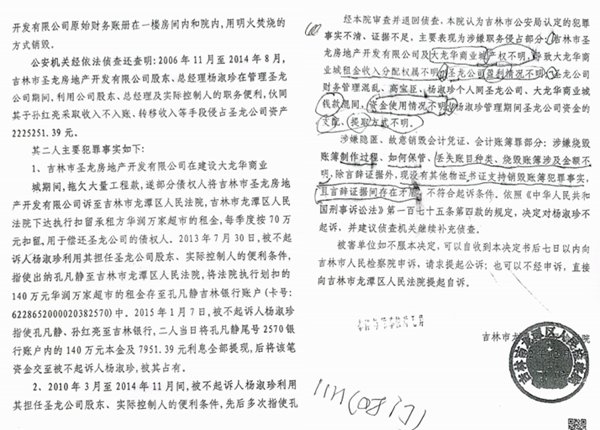 开发有限公司原始财务账册在一楼房间内和院内，用明火焚烧的
方式销毁。
公安机关经依法侦查还查明：2006 年 11 月至 2014 年 8 月，
吉林市圣龙房地产开发有限公司股东、总经理杨淑珍在管理圣龙
公司期间，利用公司股东、总经理及实际控制人的职务便利，伙同
其子孙红亮采取收入不入账、转移收入等手段侵占圣龙公司资产
2225251.39 元。
其二人主要犯罪事实如下：
1、吉林市圣龙房地产开发有限公司在建设大龙华商业
城期间，拖欠大量工程款，送部分债权人将吉林市圣龙房地产开
发有限公司诉至吉林市龙潭区人民法院，吉林市龙潭区人民法院
下达执行扣留承租方华润万家超市的租金，每季度按 70 万
元扣留，用于偿还圣龙公司的债权人。2013 年 7 月 30 日，被不起
诉人杨淑珍利用其担任圣龙公司股东、实际控制人的便利条件，
指使出纳孔凡静至吉林市龙潭区人民法院，将法院执行划扣的
140 万元华润万家超市的租金存至孔凡静吉林银行账户（卡号：
6228652000020382570）中。2015 年 1 月 7 日，被不起诉人杨淑珍
指使孔凡静、孙红亮至吉林银行，二人当日将孔凡静尾号 2570 银
行账户内的 140 万元本金及 7951.39 元利息全部提现，后将该笔
资金交至被不起诉人杨淑珍，被其占有。
2、2010 年 3 月至 2014 年 11 月间，被不起诉人杨淑珍利用
其担任圣龙公司股东、实际控制人的便利条件，先后多次指使孔
经本院审查并退回侦查，本院认为吉林市公安局认定的犯罪
事实不清、证据不足，主要表现为涉嫌职务侵占部分：吉林市圣
龙房地产开发有限公司及大龙华商业城产权不明，导致大龙华商
业城租金收入分配权属不明，圣龙公司盈利情况不明，圣龙公司
财务管理混乱，高宝臣、杨淑珍个人同圣龙公司、大龙华商业城
钱款混同，资金使用情况不明，杨淑珍管理期间圣龙公司资金的
支配、提取方式不明。
涉嫌隐匿、故意销毁会计凭证、会计账簿罪部分：涉嫌烧毁
账簿制作过程、如何保管、丢失账目种类、烧毁账簿涉及金额不
明，除言辞证据外，现没有其他物证书证支持销毁账簿犯罪事实，
且言辞证据间存在矛盾，不符合起诉条件。依照《中华人民共和
国刑事诉讼法》第一百七十五条第四款的规定，决定对杨淑珍不
起诉，并建议侦查机关继续补充侦查。
被害单位如不服本决定，可以自收到本决定书后七日以内向
吉林市人民检察院申诉，请求提起公诉；也可以不经申诉，直接
向吉林市龙潭区人民法院提起自诉。
吉林市龙潭区人民检察院